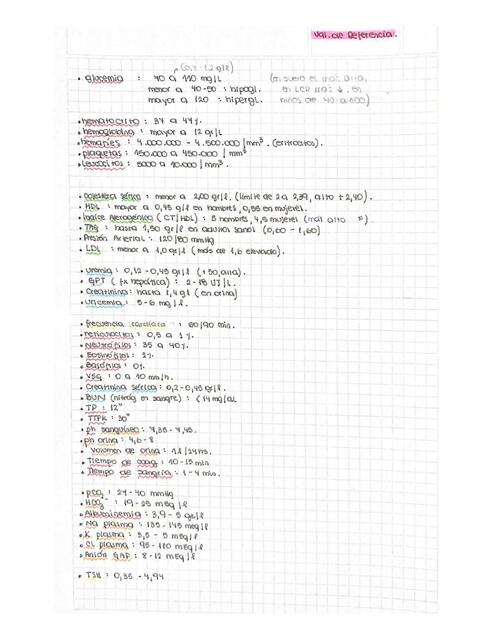 Val. de Referencia.
(0,7-1,2 g/l)
• glucemia : 70 a 110 mg/L (en suero es más alta,
menor a 40-50 : hipogl. en LCR más ↓, en
mayor a 120 : hipergl. niños de 40 a 100)
• hematocrito : 37 a 47%.
• hemoglobina : mayor a 12 gr/L
• hematíes : 4.000.000 - 4.500.000 / mm³. (eritrocitos).
• plaquetas : 150.000 a 450.000 / mm³
• leucocitos : 5000 a 10.000 / mm³.
• Colesterol sérico : menor a 2,00 gr/l. (límite de 2 a 2,39, alto + 2,40).
• HDL : mayor a 0,45 g/l en hombres, 0,55 en mujeres.
• Índice Aterogénico (CT/HDL) : 5 hombres, 4,5 mujeres (más alto)
• TAG : hasta 1,50 gr/l en adultos sanos (0,60 - 1,60)
• Presión Arterial : 120/80 mmHg
• LDL : menor a 1,0 gr/l (más de 1,6 elevado).
• Uremia : 0,12 - 0,45 gr/l (+50, alta).
• GPT (fx hepática) : 2 - 18 UI/L.
• Creatinina : hasta 1,4 g/l (en orina)
• Uricemia : 5 - 6 mg/l.
• frecuencia cardíaca : 60/90 min.
• reticulocitos : 0,5 a 1%.
• Neutrófilos : 35 a 40%.
• Eosinófilos : 2%
• Basófilos : 0%.
• VSG : 0 a 10 mm/h.
• Creatinina sérica : 0,2 - 0,45 gr/l.
• BUN (nitróg en sangre) : < 14 mg/dL
• TP : 12"
• TTPK : 30"
• ph sanguíneo : 7,35 - 7,45.
• ph orina : 4,6 - 8
• Volumen de orina : 1 l / 24hs.
• Tiempo de coag : 10 - 15 min
• Tiempo de sangría : 1 - 4 min.
• pCO₂ : 27 - 40 mmHg
• HCO₃⁻ : 19 - 25 mEq/l
• Albuminemia : 3,9 - 5 gr/l
• Na plasma : 135 - 145 meq/l
• K plasma : 3,5 - 5 mEq/l
• CL plasma : 95 - 110 mEq/l
• Anión GAP : 8 - 12 mEq/l
• TSH : 0,35 - 4,94